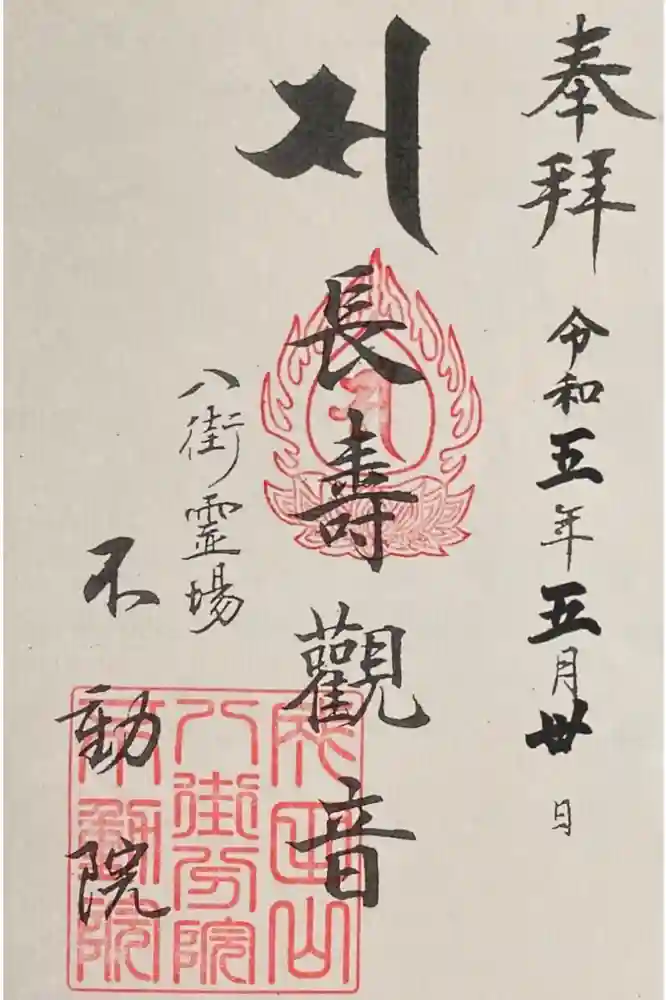 奉拝
令和五年五月丗日
長壽觀音
八街霊場
不動院
成田山
八街分院
不動院